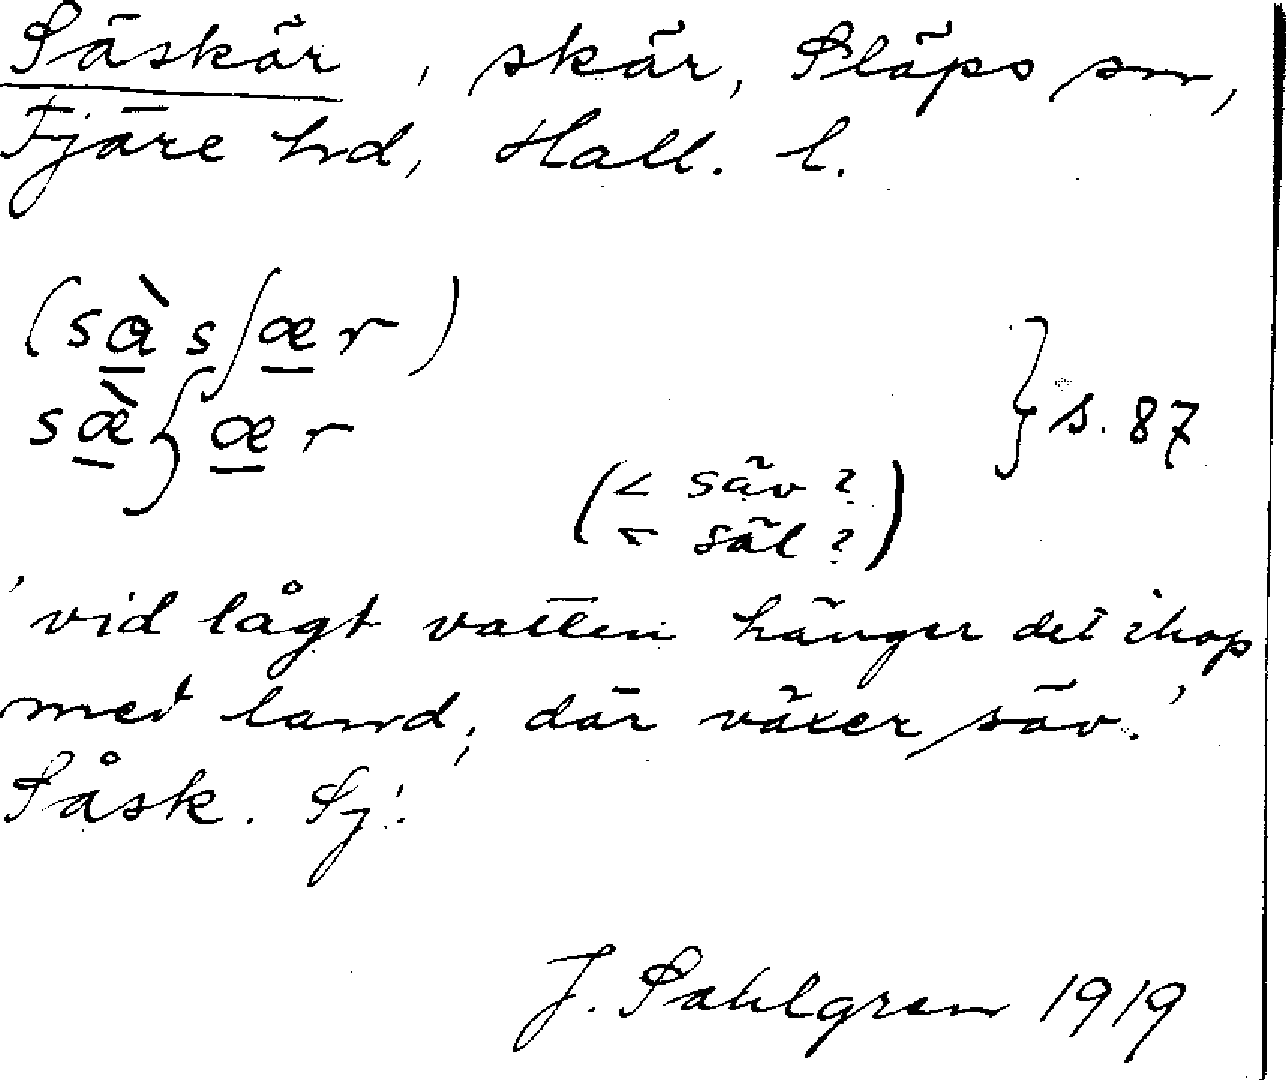 Säskär, skär, Släps sn,
Fjäre hd, Hall. l.
(sæ̀sʃær)
sæ̀ʃær } s. 87
(< säv?
< säl?)
'vid lågt vatten hänger det ihop
med land; där växer säv.'
Såsk. Sj:
J. Sahlgren 1919